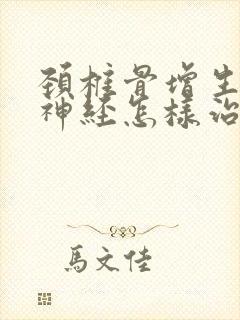 頚椎骨增生
神经怎樣治
馬文佳